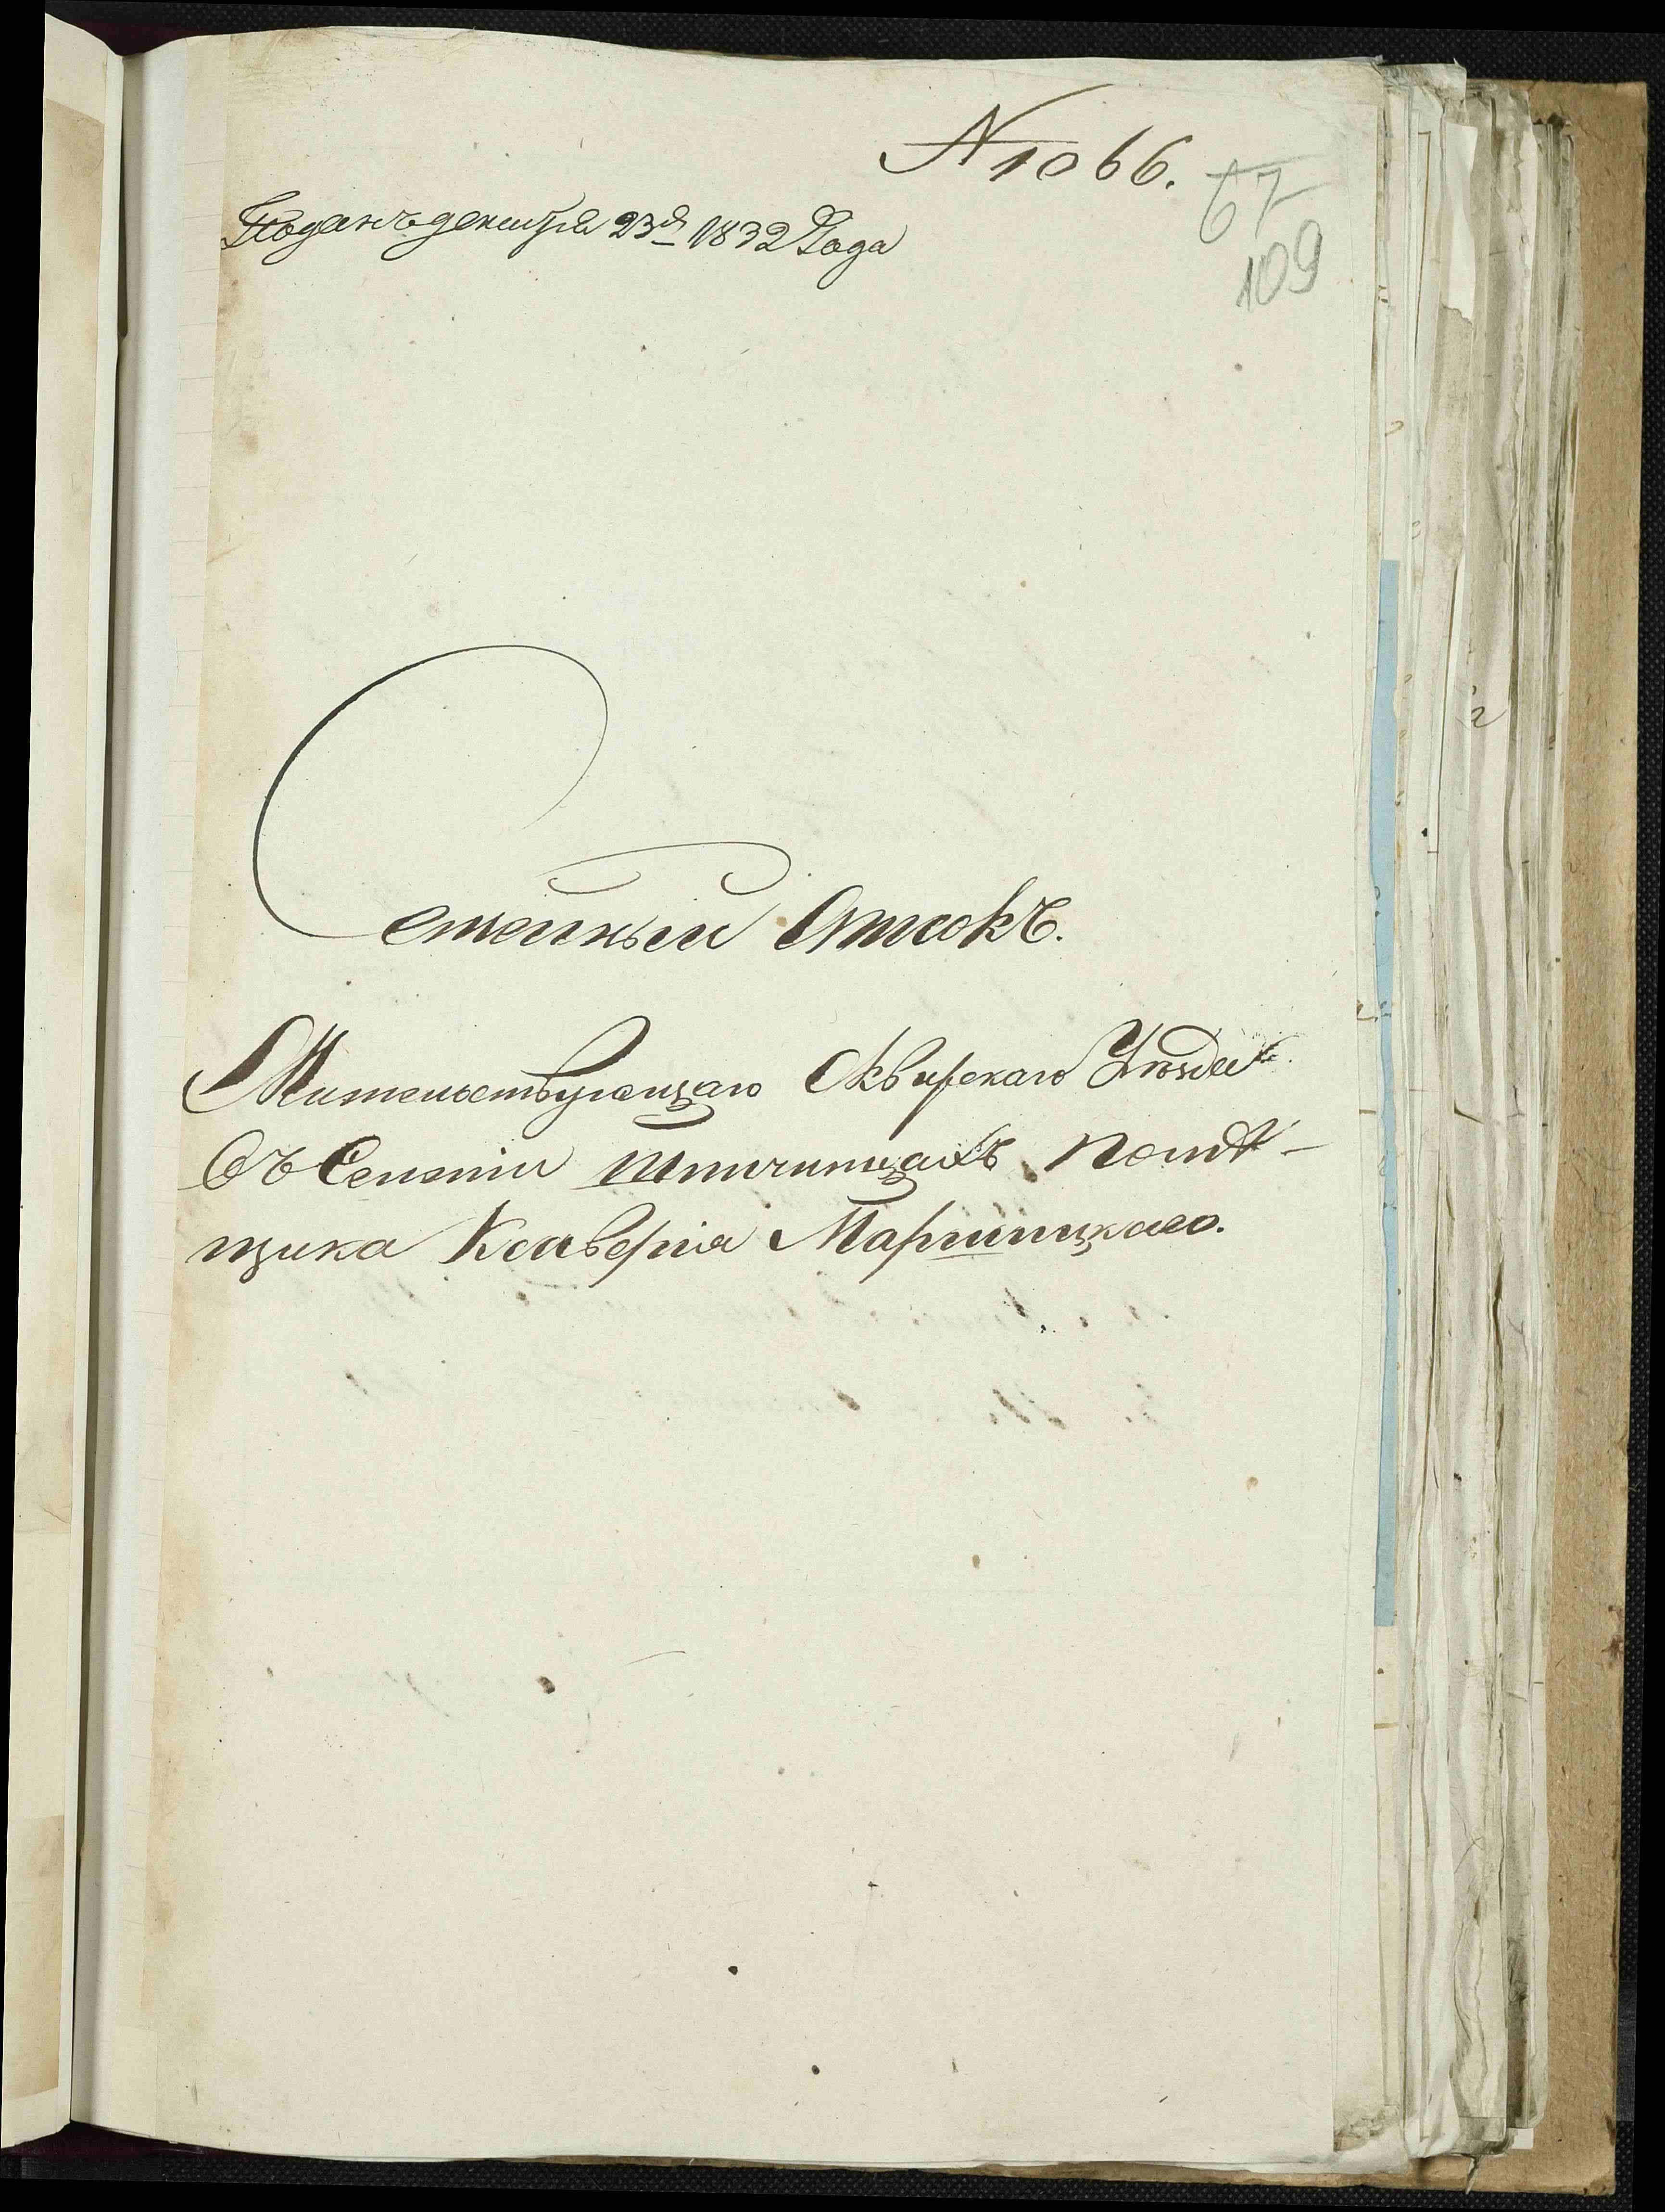 N 1066.
67
109
Поданъ декабря 23д 1832 Года
Семейный Списокъ.
Жительствующаго Сквирскаго Уезда
Въ Селенiи Пиичинцахъ Помѣ-
щика Ксаверiя Маршицкаго.